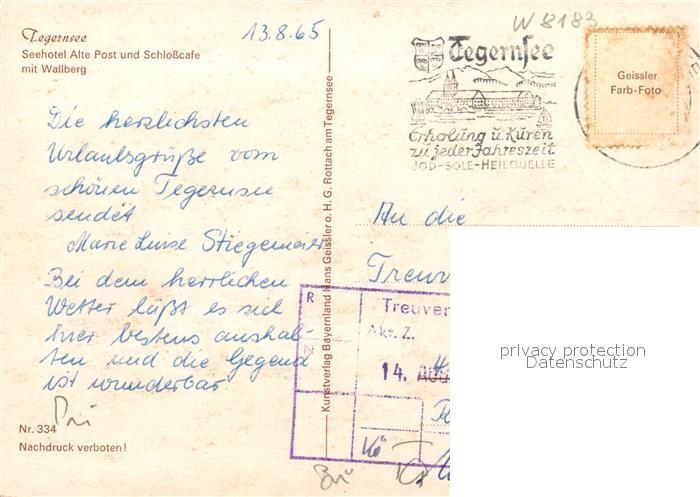 Tegernsee
Seehotel Alte Post und Schloßcafe
mit Wallberg
13.8.65
W 8183
Tegernsee
Erholung u. Kuren
zu jeder Jahreszeit
JOD-SOLE-HEILQUELLE
Geissler
Farb-Foto
Die herzlichsten
Urlaubsgrüße vom
schönen Tegernsee
sendet
Marie Luise Stiegemeier
Bei dem herrlichen
Wetter läßt es sich
hier bestens aushal-
ten und die Gegend
ist wunderbar.
Nr. 334
Nachdruck verboten!
Kunstverlag Bayernland Hans Geissler o. H. G. Rottach am Tegernsee
An die
Treuv
R
Treuver
Akt. Z.
14. AUG
Kö
privacy protection
Datenschutz